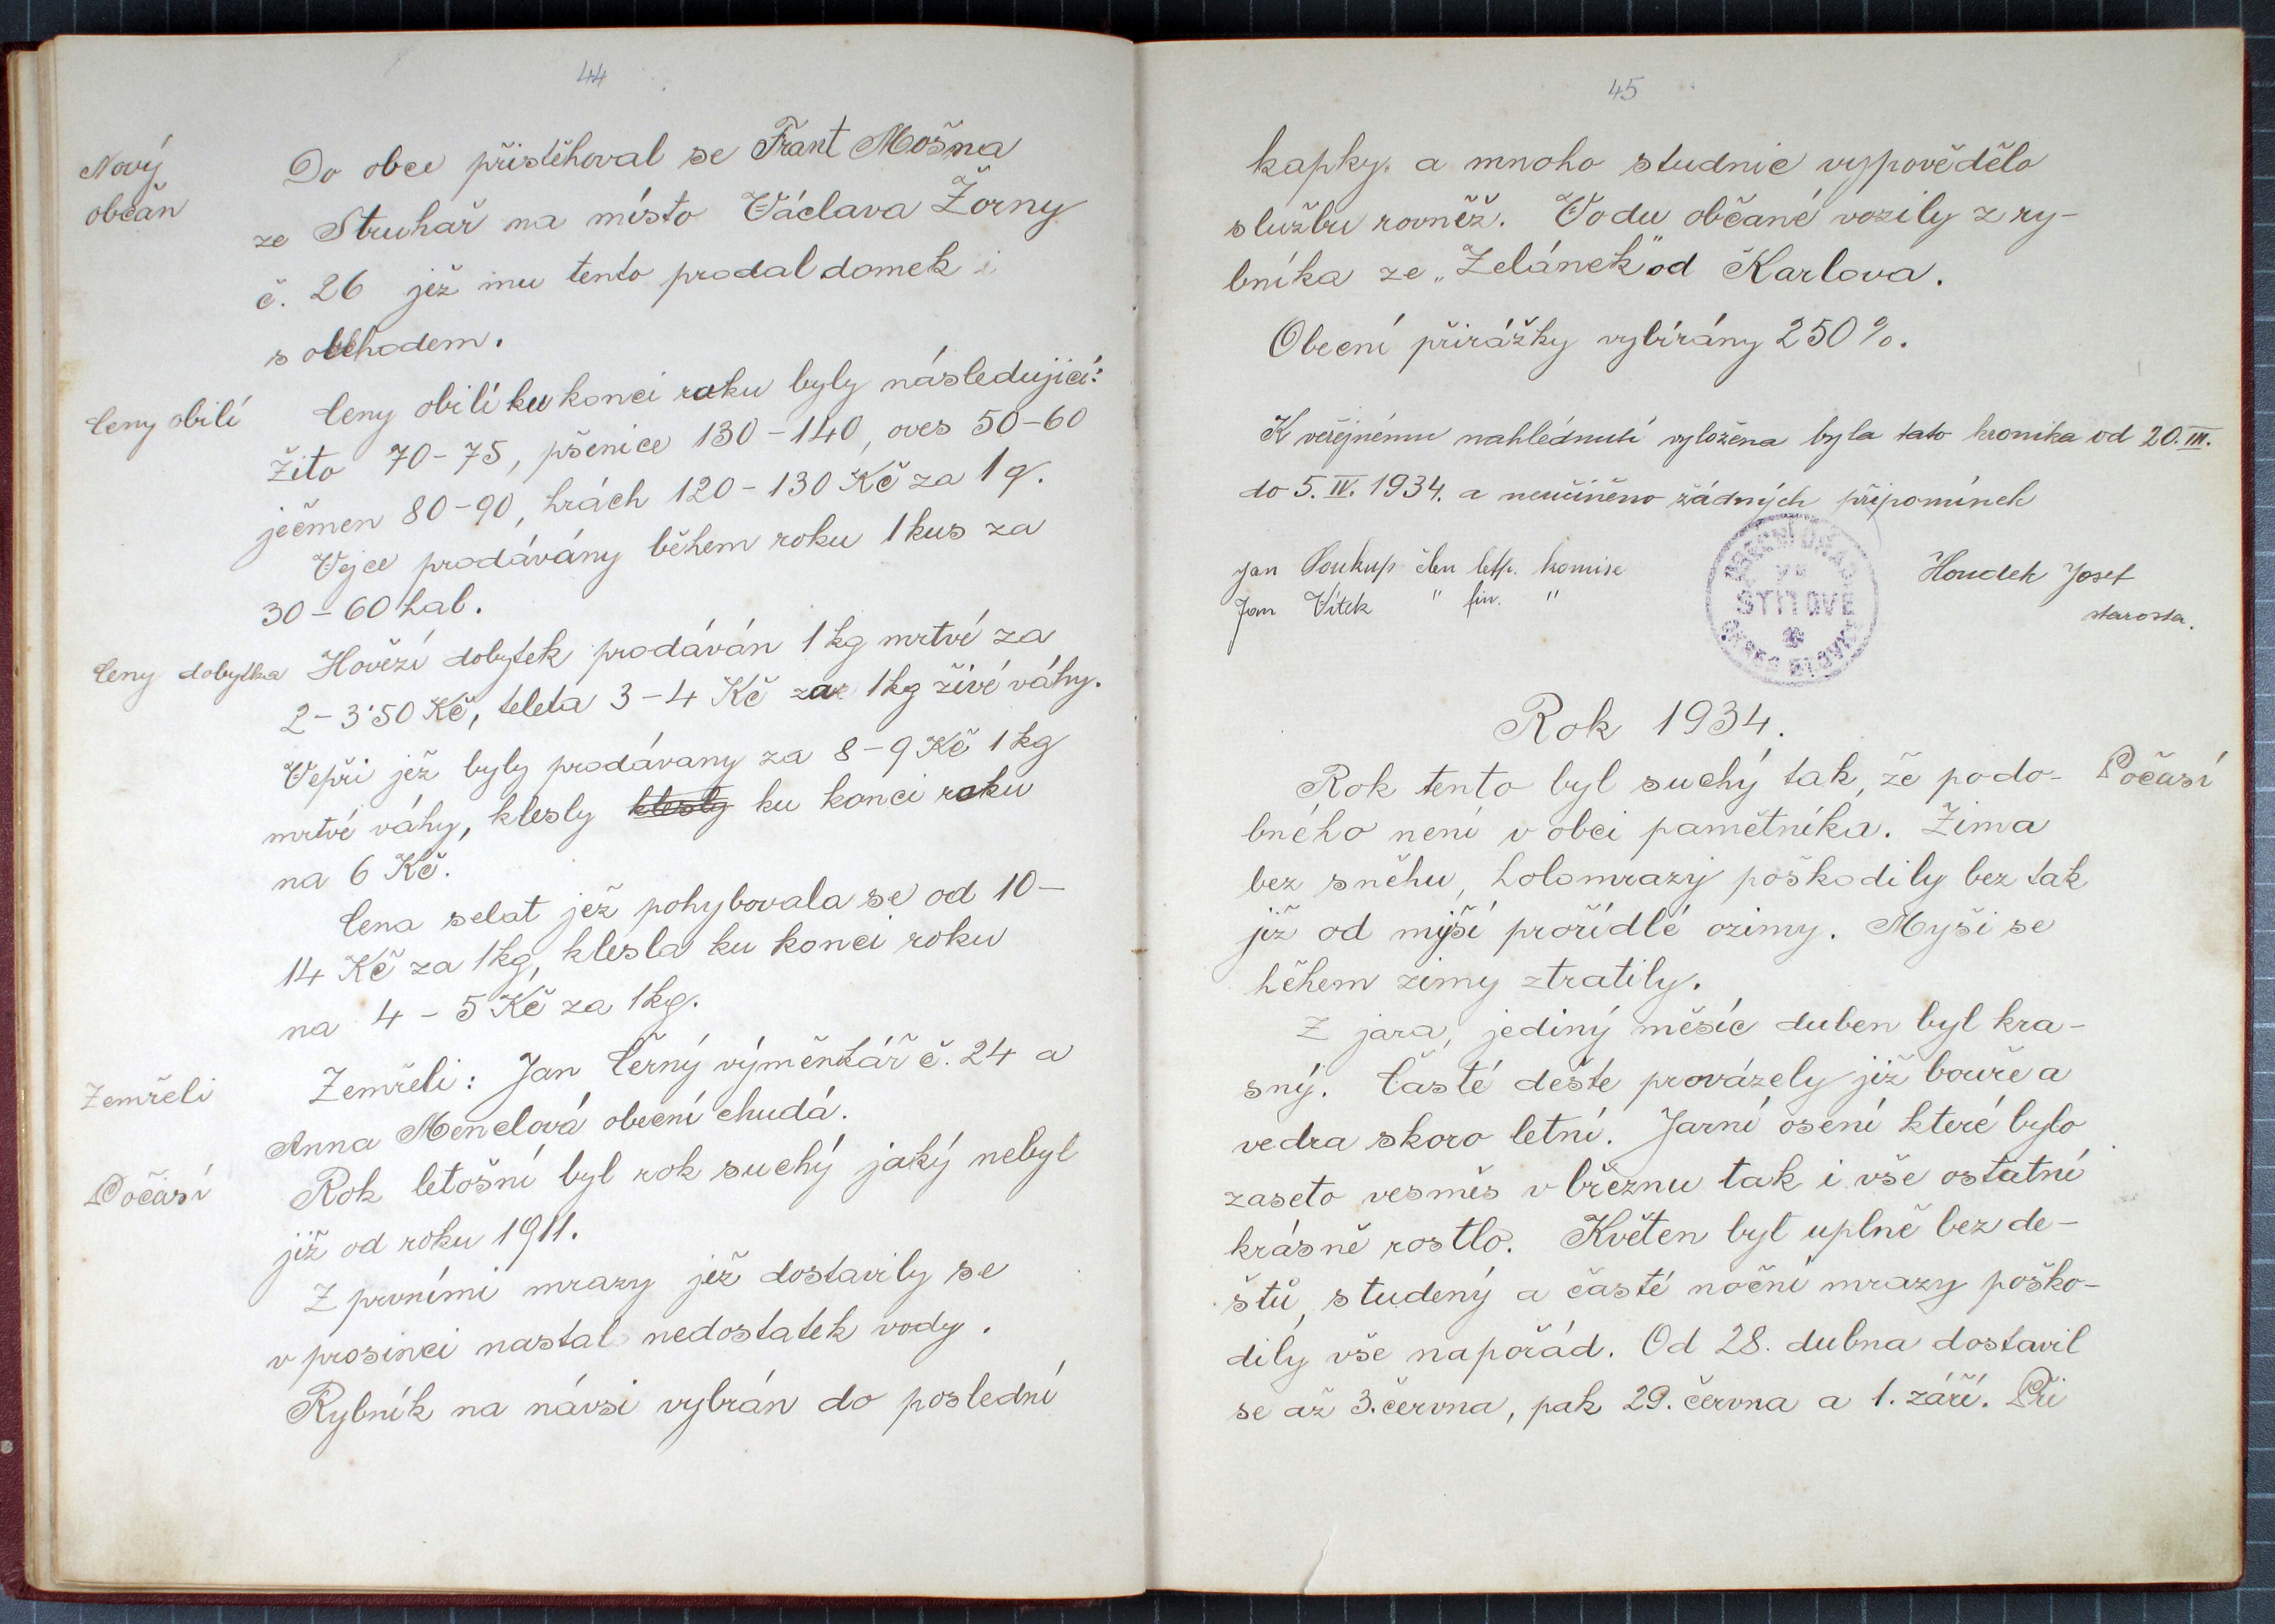 44
Nový
občan
Do obce přistěhoval se Frant Mošna
ze Struhař na místo Václava Žorny
č. 26 jež mu tento prodal domek i
s obchodem.
Ceny obilí
Ceny obilí ku konci roku byly následující:
Žito 70-75, pšenice 130-140, oves 50-60
ječmen 80-90, hrách 120-130 Kč za 1 q.
Vejce prodávány během roku 1 kus za
30-60 hal.
Ceny dobytka
Hovězí dobytek prodáván 1 kg mrtvé za
2-3˙50 Kč, teleta 3-4 Kč za 1 kg živé váhy.
Vepři jež byly prodávany za 8-9 Kč 1 kg
mrtvé váhy, klesly klesly ku konci roku
na 6 Kč.
Cena selat jež pohybovala se od 10-
14 Kč za 1 kg, klesla ku konci roku
na 4-5 Kč za 1 kg.
Zemřeli
Zemřeli: Jan Černý výměnkář č. 24 a
Anna Menclová obecní chudá.
Počasí
Rok letošní byl rok suchý jaký nebyl
již od roku 1911.
Z prvními mrazy jež dostavily se
v prosinci nastal nedostatek vody.
Rybník na návsi vybrán do poslední
45
kapky. a mnoho studnic vypovědělo
službu rovněž. Vodu občané vozily z ry-
bníka ze „Zelánek" od Karlova.
Obecní přirážky vybírány 250%.
K veřejnému nahlédnutí vyložena byla tato kronika od 20. III.
do 5. IV. 1934. a neučiněno žádných připomínek
Jan Soukup člen letp. komise
Jan Vítek " fin. "
OBECNÍ ÚŘAD
VE
ŠTÍTOVĚ
OKRES BLOVICE
Houdek Josef
starosta.
Rok 1934.
Počasí
Rok tento byl suchý tak, že podo-
bného není v obci pamětníka. Zima
bez sněhu, holomrazy poškodily bez tak
již od myší prořídlé ozimy. Myši se
během zimy ztratily.
Z jara, jediný měsíc duben byl kra-
sný. Časté deště provázely již bouře a
vedra skoro letní. Jarní osení které bylo
zaseto vesměs v březnu tak i vše ostatní
krásně rostlo. Květen byl uplně bez de-
štů, studený a časté noční mrazy poško-
dily vše napořád. Od 28. dubna dostavil
se až 3. června, pak 29. června a 1. září. Při